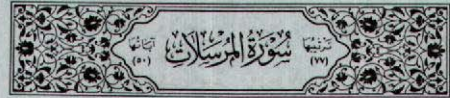 ترتيبها (٧٧) سُورَةُ المُرْسَلَاتِ آياتها (٥٠)